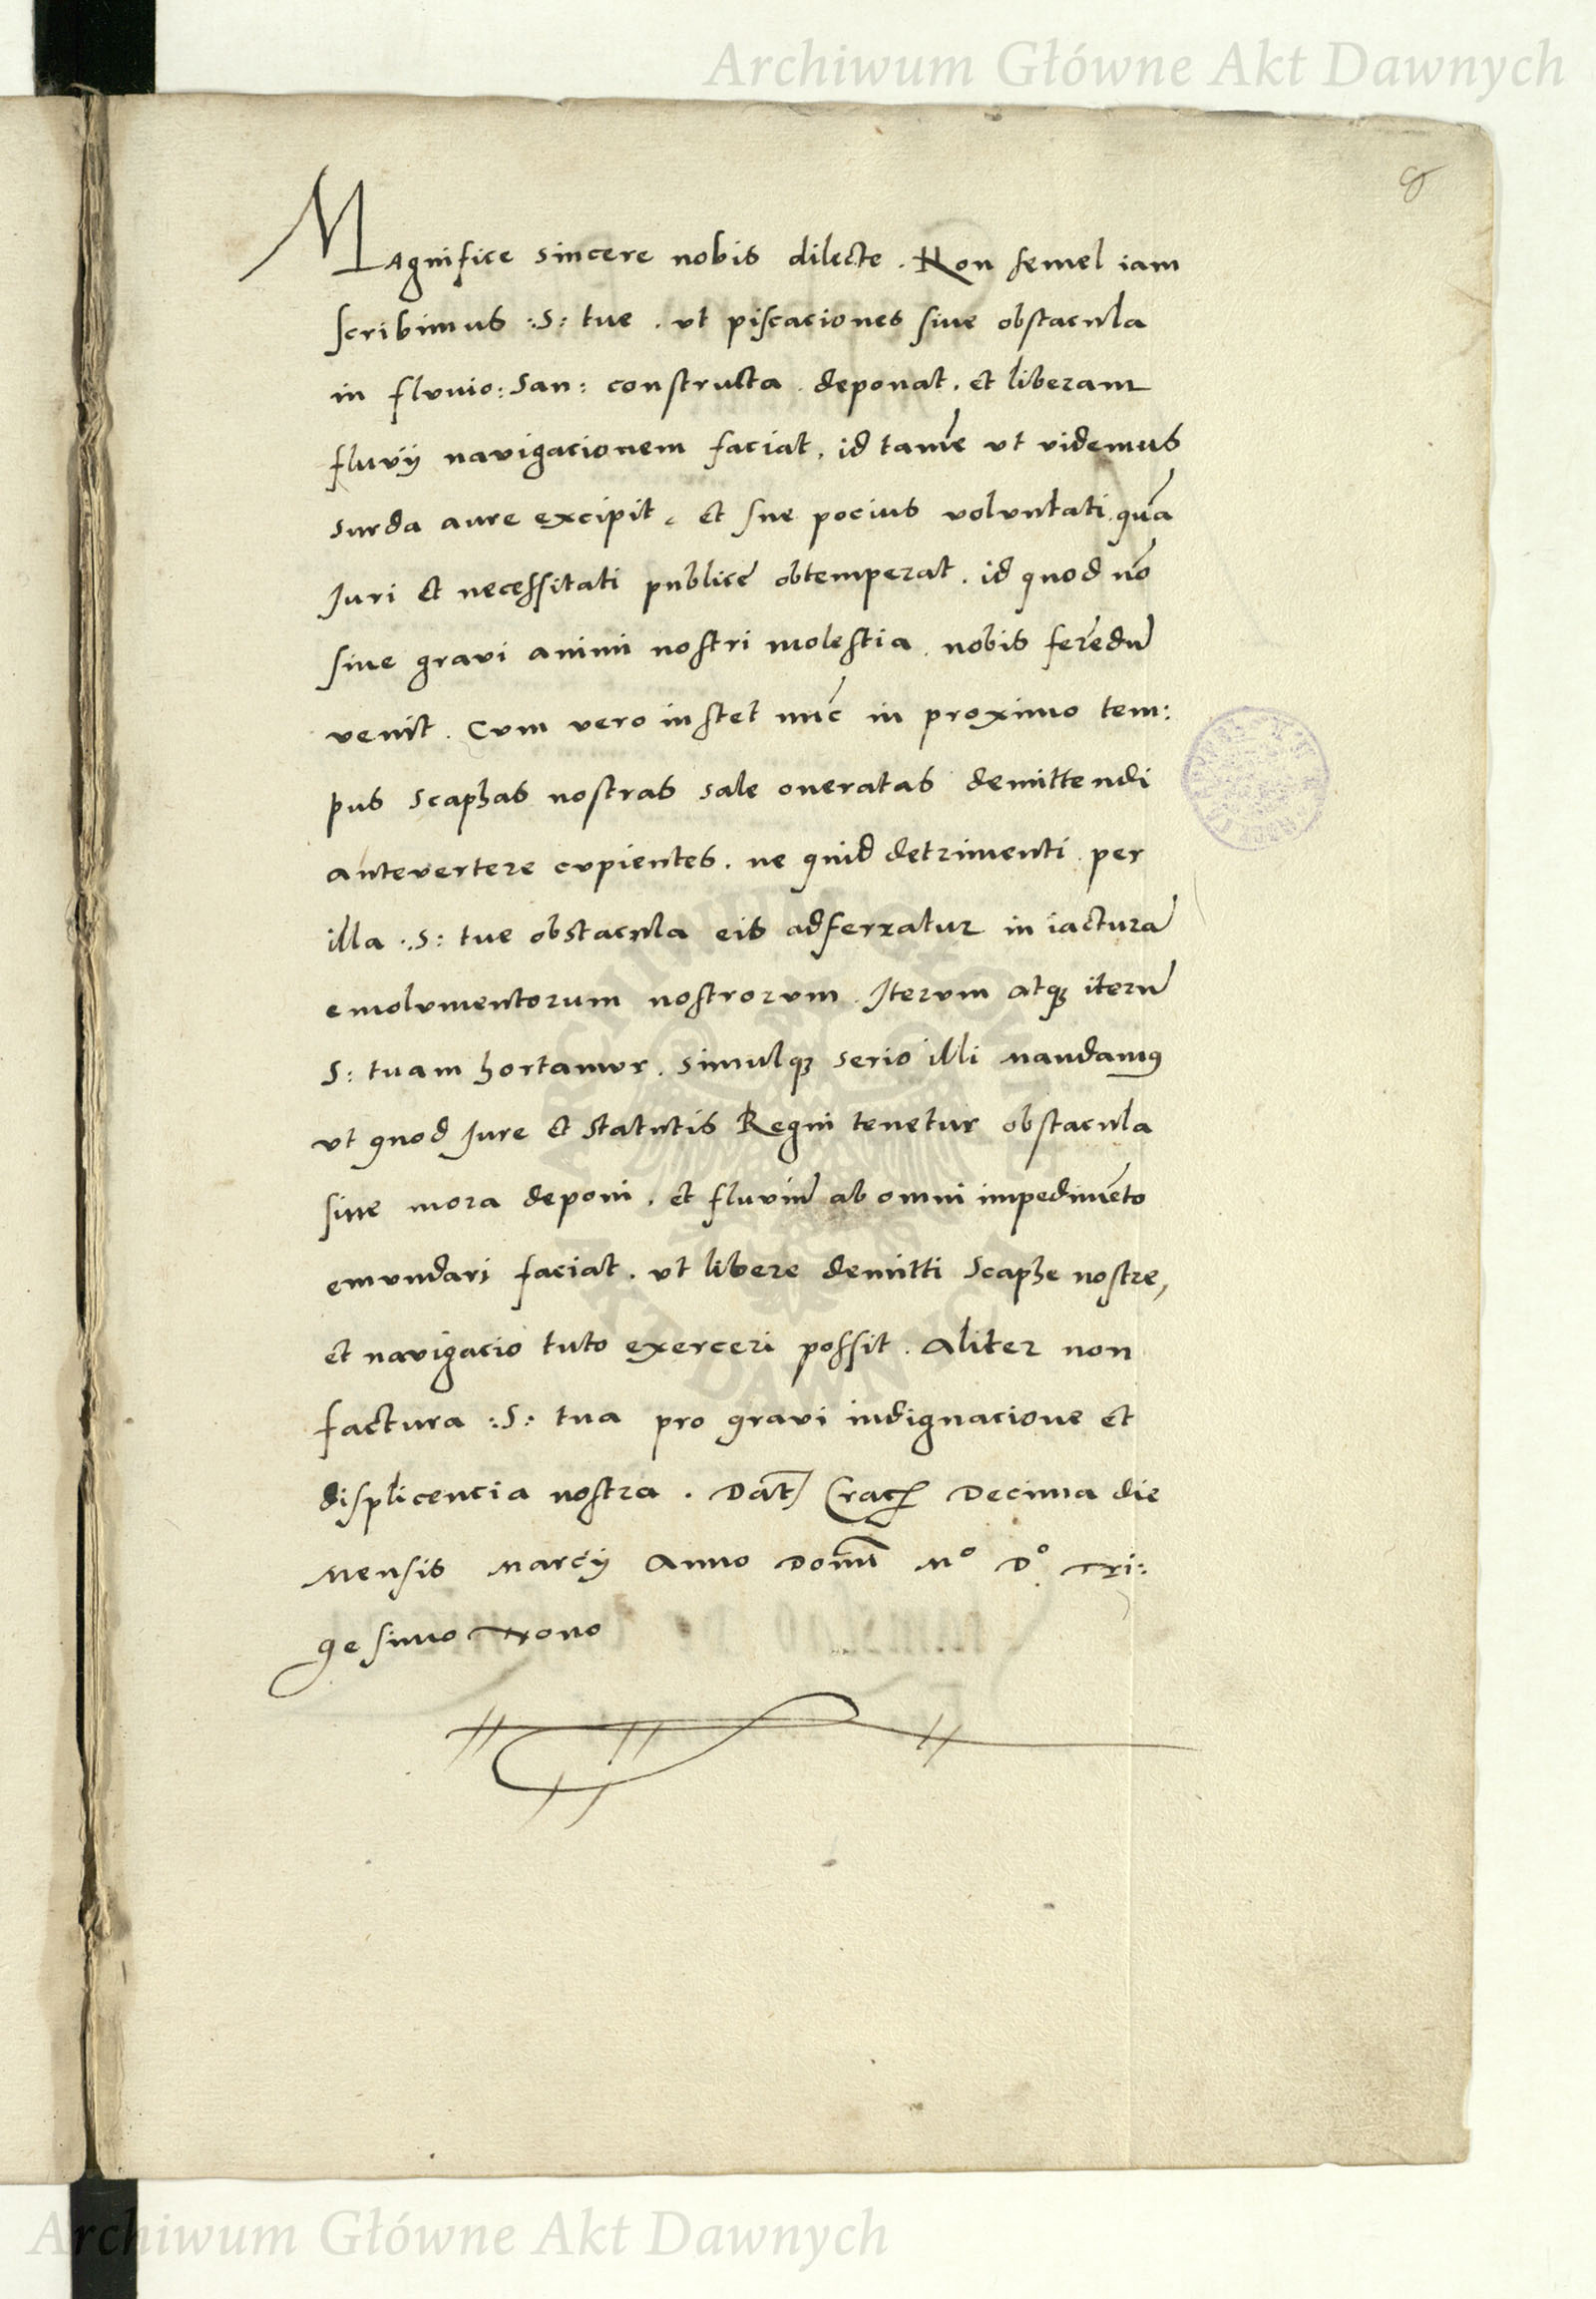 Archiwum Główne Akt Dawnych
8
Magnifice sincere nobis dilecte . Non semel iam
scribimus :S: tue . ut piscaciones sive obstacula
in fluvio : San : constructa . deponat . et liberam
fluvij navigacionem faciat . id tamē ut videmus
surda aure excipit , et sue pocius voluntati quā
Juri et necessitati publicē obtemperat . id quod nō
sine gravi animi nostri molestia . nobis ferēdū
venit . Cum vero instet nūc in proximo tem:
pus scaphas nostras sale oneratas demittendi
antevertere cupientes . ne quid detrimenti per
illa .S: tue obstacula eis adferratur in iacturā
emolumentorum nostrorum . Iterum atqꝫ iterū
S: tuam hortamur . simulqꝫ serio illi mandamꝰ
ut quod Jure et statutis Regni tenetur obstacula
sine mora deponi . et fluviū ab omni impedimēto
emundari faciat . ut libere demitti Scaphe nostre,
et navigacio tuto exerceri possit . Aliter non
factura :S: tua pro gravi indignacione et
displicencia nostra . Dat̄ Crac̄ Decima die
Mensis Marcij Anno Domī Mº Dº Tri:
gesimo Nono
ARCHIWUM GŁÓWNE
AKT DAWNYCH
Archiwum Główne Akt Dawnych